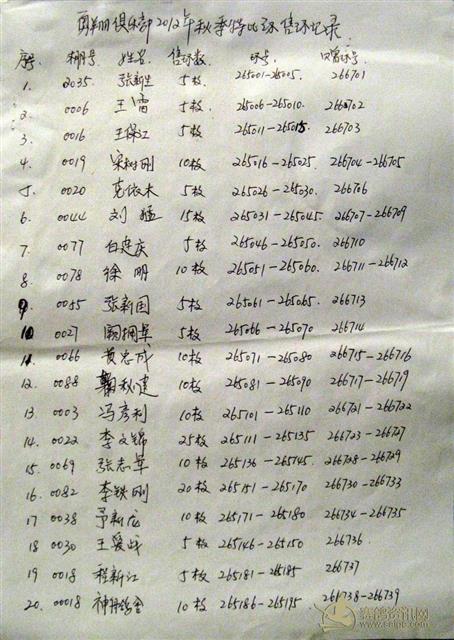 翔俱乐部2012年秋季特比环售环记录
序号 棚号 姓名 售环数 环号 回曾环号
1. 2035 张新生 5枚 265001-265005. 266701
2. 0006 王雷 5枚 265006-265010. 266702
3 0016 王保江 5枚 265011-265015. 266703
4. 0019 宋树刚 10枚 265016-265025. 266704-266705
5. 0020 克依木 5枚 265026-265030. 266706
6. 0044 刘猛 15枚 265031-265045. 266707-266709
7. 0077 白建庆 5枚 265046-265050. 266710
8. 0078 徐明 10枚 265051-265060. 266711-266712
9. 0055 张新国 5枚 265061-265065. 266713
10 0027 5枚 265066-265070 266714
11. 0066 黄忠成 10枚 265071-265080 266715-266716
12. 0088 秋建 10枚 265081-265090 266717-266719
13 0003 冯彦利 10枚 265101-265110 266721-266722
14. 0022 李文锦 25枚 265111-265135 266723-266727
15. 0069 张志革 10枚 265136-265145. 266728-266729
16. 0082 李铁刚 20枚 265151-265170 266730-266733
17 0038 予新龙 10枚 265171-265180 266734-266735
18 0030 王爱战 5枚 265146-265150 266736
19 0018 程新江 5枚 265181-265185 266737
20. 00018 神丹鸽舍 10枚 265186-265195 266738-266739
赛鸽资讯网